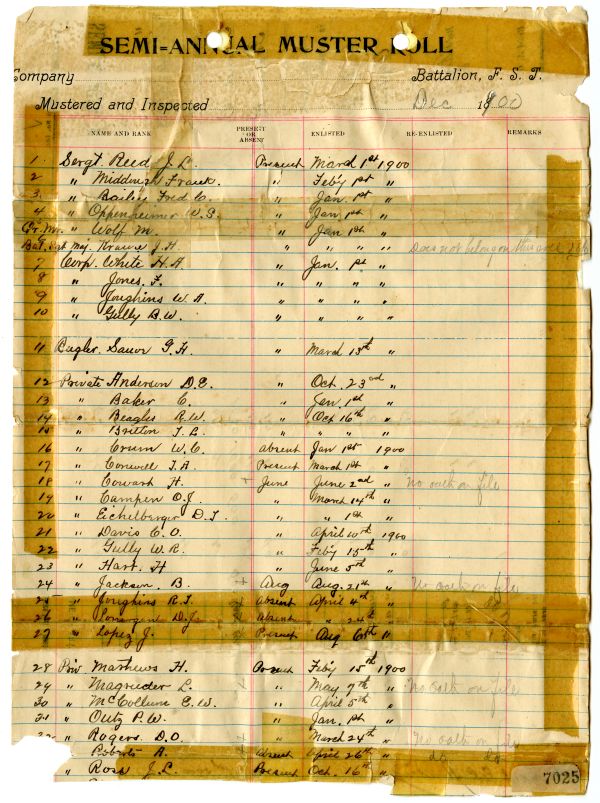 SEMI=ANNUAL MUSTER ROLL
Company Battalion, F. S. T.
Mustered and Inspected Dec 1900
NAME AND RANK PRESENT OR ABSENT ENLISTED RE-ENLISTED REMARKS
1. Sergt Reed J. L. Present March 1st 1900
2 " Frank " Feby 1st "
3. " Bailey Fred C. " Jan. 1st "
4 " Oppenheimer W. G. " Jan 1st "
" Wolf M. " Jan 1st "
Maj. Krause J. H. " " " " Does not belong on this
7 Corp. White H. A. " Jan. 1st "
8 " Jones. F. " " " "
9 " Joughins W. A. " " " "
10 " Gully B. W. " " " "
11 Bugler. Sauer G. H. " March 13th "
12 Private Anderson D. E. " Oct. 23rd "
13 " Baker C. " Jan. 1st "
14 " Beagles A. W. " Oct 16th "
15 " Britton T. L. " " " "
16 " Crum W. C. absent Jan 1st 1900
17 " T. A. Present March 1st "
18 " Cowart H. June June 2nd " No oath on file
19 " Campen O. J. " March 14th "
20 " Eichelberger D. T. " " 1st "
21 " Davis C. O. " April 10th 1900
22 " Gully W. R. " Feby 15th "
23 " Hart. H " June 5th "
24 " Jackson. B. Aug Aug. 21st " No oath on file
25 " Joughins R. T. absent April 4th "
26 " D. J. absent " 24th "
27 " Lopez J. Present Aug 6th "
28 Priv Mathews H. Present Feby 15th 1900
29 " Magruder L. " May 7th " No oath on file
30 " McCollum C. W. " April 5th "
31 " Outz P. W. " Jan. 1st "
32 " Rogers. D. O. " March 24th " No oath on file
Roberts R. absent April 26th " do do
" Ross J. L. Present Oct. 16th "
7025